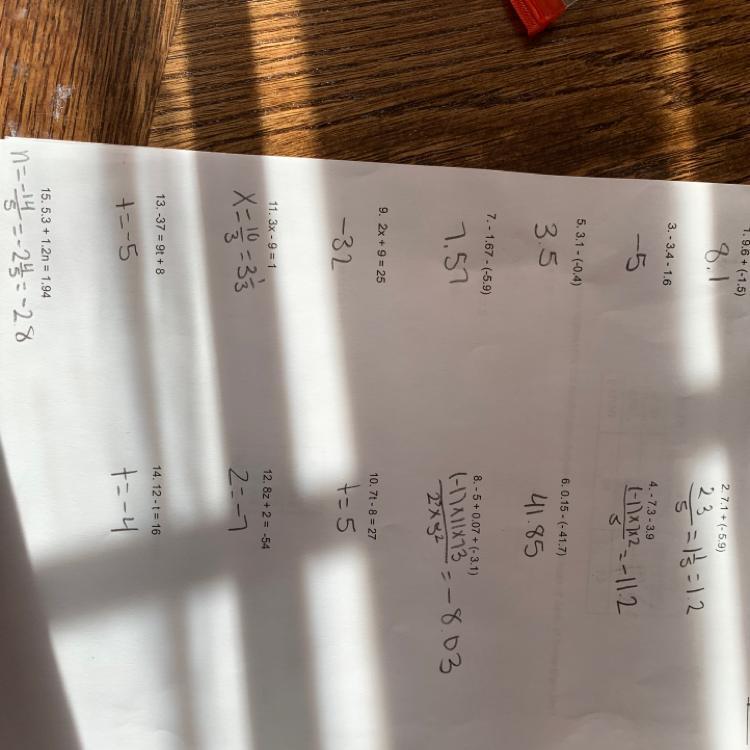 1. 9.6 + (-1.5)
8.1
2. 7.1 + (-5.9)
2 3
5 = 1 1/5 = 1.2
3. - 3.4 - 1.6
-5
4. - 7.3 - 3.9
(-1)x7x2
5 = -11.2
5. 3.1 - (-0.4)
3.5
6. 0.15 - (-41.7)
41.85
7. - 1.67 - (-5.9)
7.57
8. - 5 + 0.07 + (-3.1)
(-1)x11x73
2²x5² = -8.03
9. 2x + 9 = 25
-32
10. 7t - 8 = 27
t=5
11. 3x - 9 = 1
x = 10/3 = 3 1/3
12. 8z + 2 = -54
z=-7
13. -37 = 9t + 8
t=-5
14. 12 - t = 16
t=-4
15. 5.3 + 1.2n = 1.94
n=-14/5 = -2 4/5 = -2 8